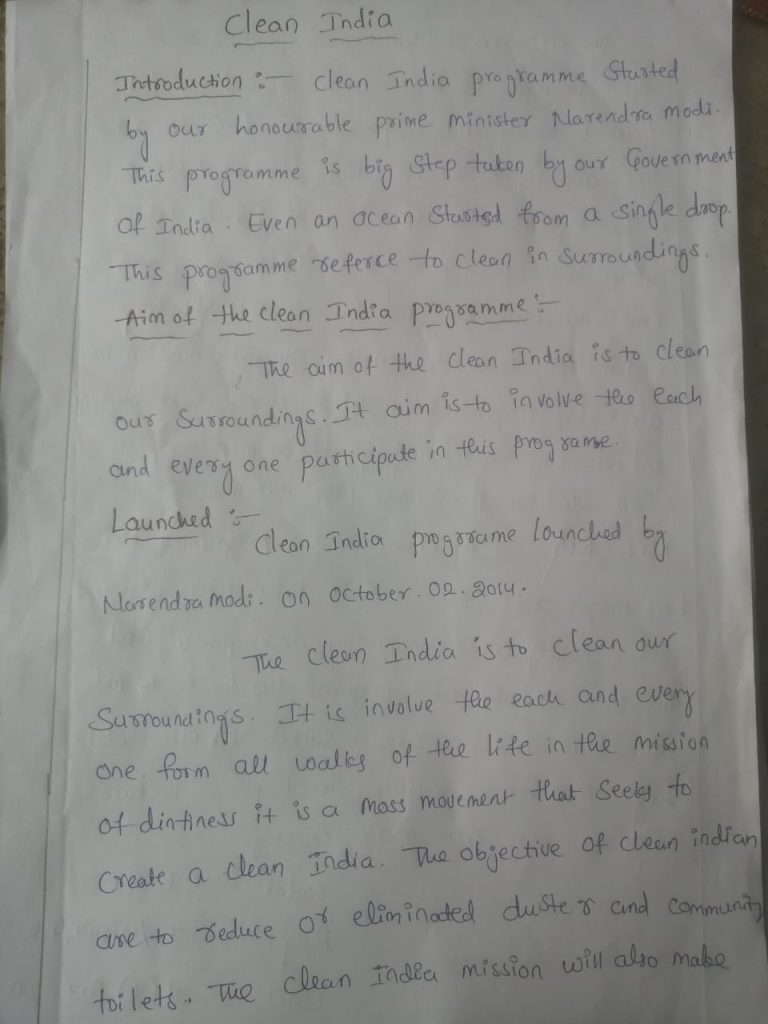 Clean India
Introduction :- Clean India programme Started
by our honourable prime minister Narendra modi.
This programme is big Step taken by our Government
Of India. Even an ocean Started from a single drop.
This programme referse to clean in Surroundings.
Aim of the clean India programme :-
The aim of the clean India is to clean
our Surroundings. It aim is to involve the each
and every one participate in this programe.
Launched :-
Clean India progrrame lounched by
Narendra modi. On October. 02. 2014.
The clean India is to clean our
Surroundings. It is involve the each and every
one. form all walks of the life in the mission
of dintiness it is a mass movement that Seeks to
Create a clean India. The objective of clean indian
are to reduce or eliminated duster and community
toilets. The clean India mission will also make